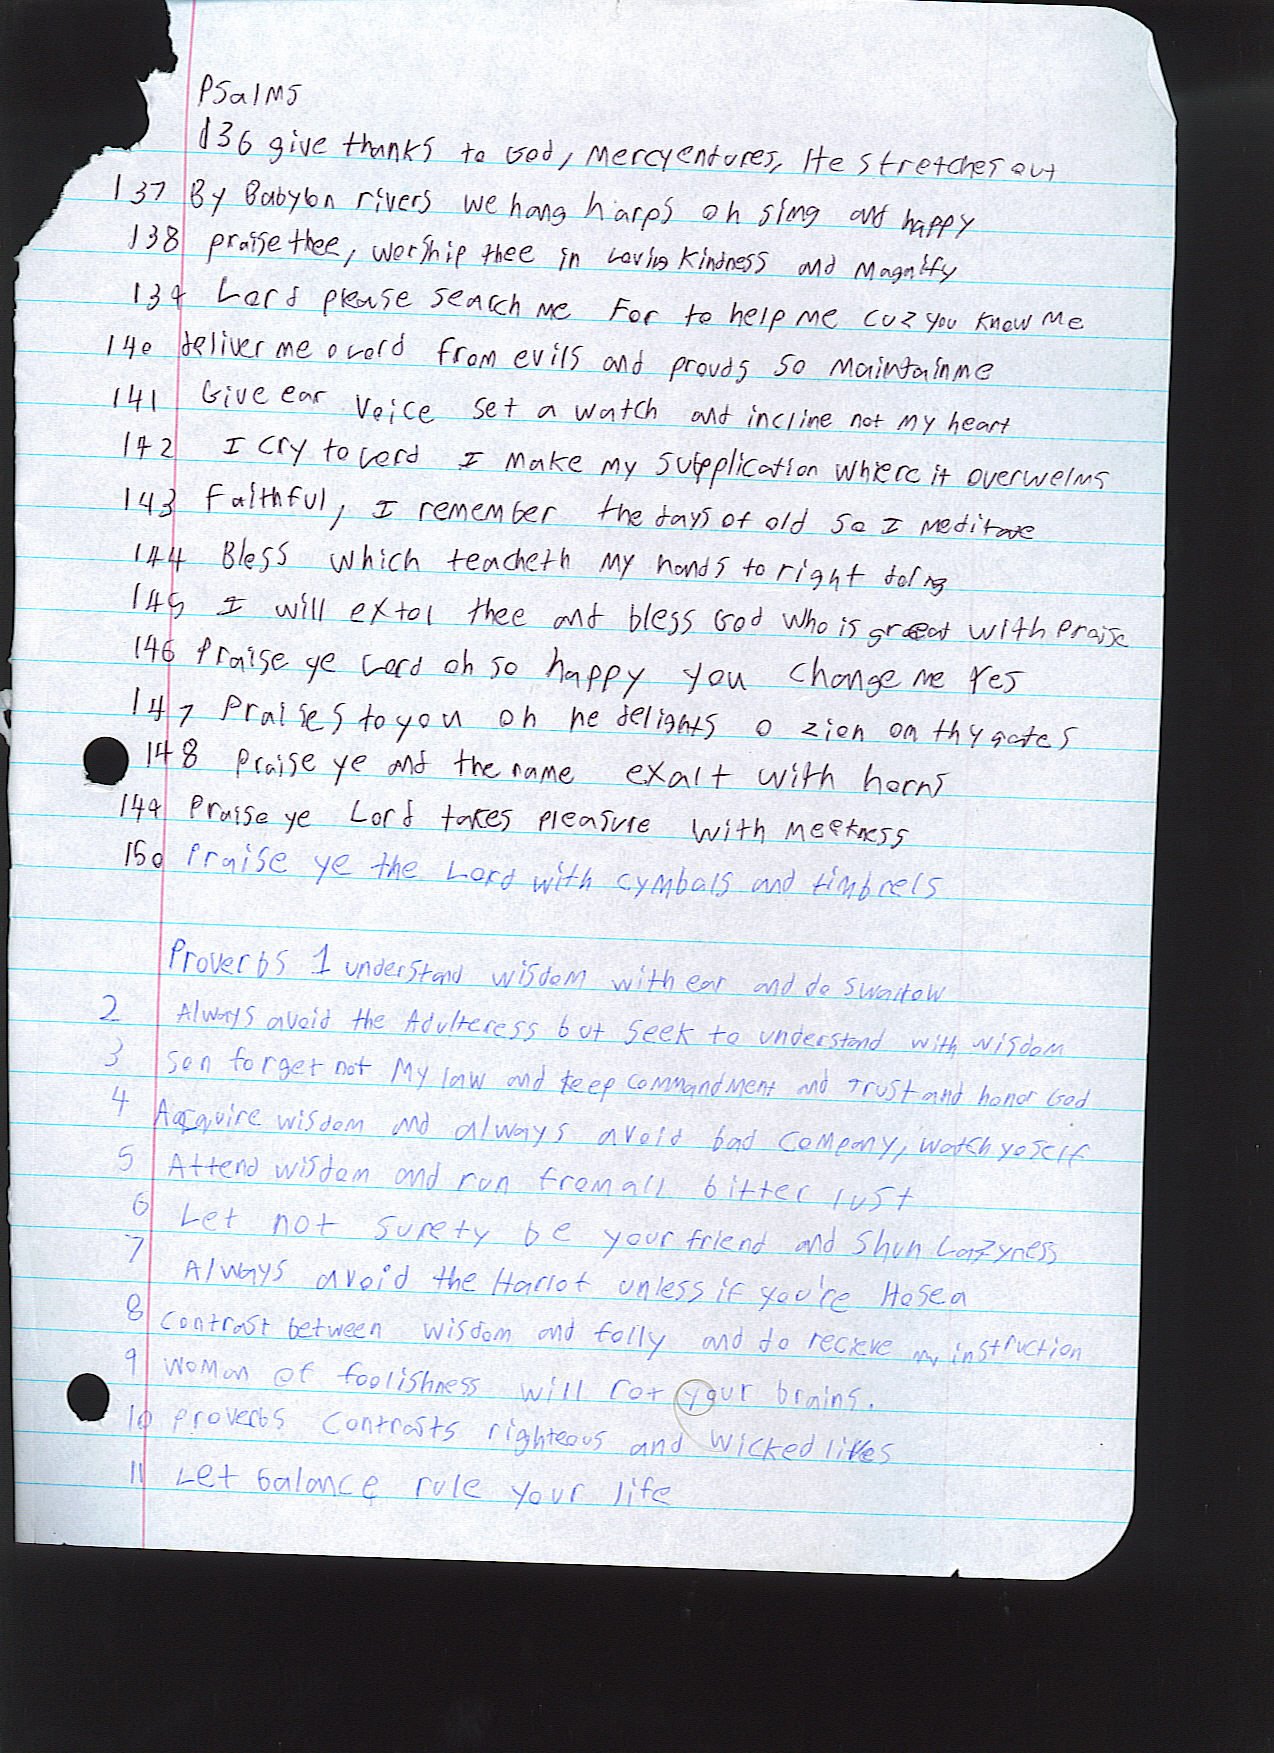 Psalms
136 give thanks to God, Mercy entures, He stretches out
137 By Babylon rivers we hang harps oh sing and happy
138 praise thee, worship thee in Loving Kindness and Magnify
139 Lord please search me For to help me cuz you know Me
140 deliver me o Lord from evils and prouds so Maintain me
141 Give ear Voice set a watch and incline not my heart
142 I cry to Lord I make my supplication where it overwelms
143 Faithful, I remember the days of old so I Meditate
144 Bless which teacheth my hands to right doing
145 I will extol thee and bless God who is great with Praise
146 Praise ye Lord oh so happy you change me Yes
147 Praises to you oh he delights o zion on thy gates
148 Praise ye and the name exalt with horns
149 Praise ye Lord takes pleasure with meekness
150 Praise ye the Lord with cymbals and timbrels
Proverbs 1 understand wisdom with ear and do swallow
2 Always avoid the Adulteress but seek to understand with wisdom
3 Son forget not My law and keep commandment and Trust and honor God
4 Acquire wisdom and always avoid bad company, watch yoself
5 Attend wisdom and run from all bitter lust
6 Let not surety be your friend and Shun Lazyness
7 Always avoid the Harlot unless if you're Hosea
8 Contrast between wisdom and folly and do recieve my instruction
9 Woman of foolishness will rot your brains.
10 Proverbs Contrasts righteous and wicked lives
11 Let balance rule your life